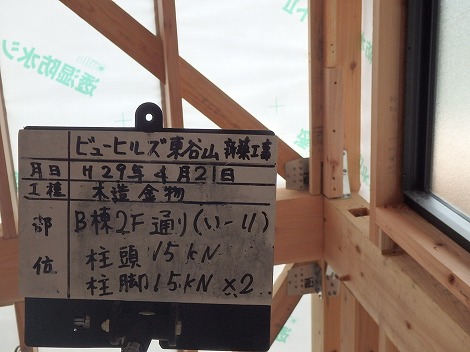 透湿防水シ
ビューヒルズ東谷山 新築工事
月日 H29年4月21日
工種 木造金物
部位 B棟2F通り(い-11)
柱頭15kN
柱脚15kN×2